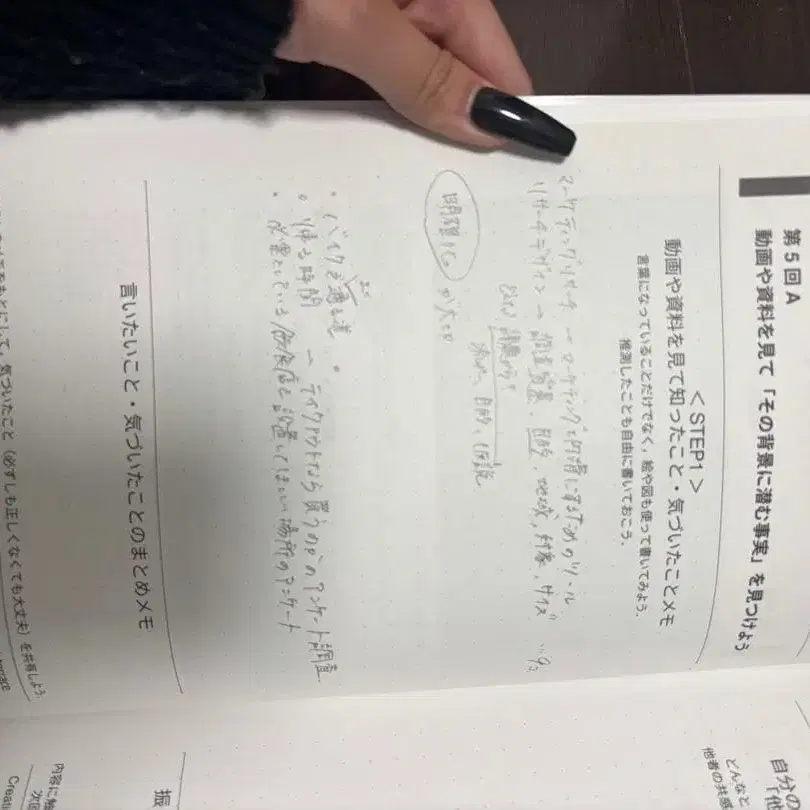 第5回A
動画や資料を見て「その背景に潜む事実」を見つけよう
＜STEP1＞
動画や資料を見て知ったこと・気づいたことメモ
言葉になっていることだけでなく，絵や図も使って書いてみよう．
推測したことも自由に書いておこう．
マーケティングリサーチ → マーケティングを円滑にするためのツール
リサーチデザイン → 背景、目的、地域、対象、サイズ
どんな
目的、仮説
明確化 が大切
・バイクを
・時間 → テイクアウトなら買うのかのアンケート調査
・必要としている 設置してほしい場所のアンケート
言いたいこと・気づいたことのまとめメモ
気づいたこと（必ずしも正しくなくても大丈夫）を共有しよう
自分の
どんなと
他者の共感
振
内容に触
次回
Creati